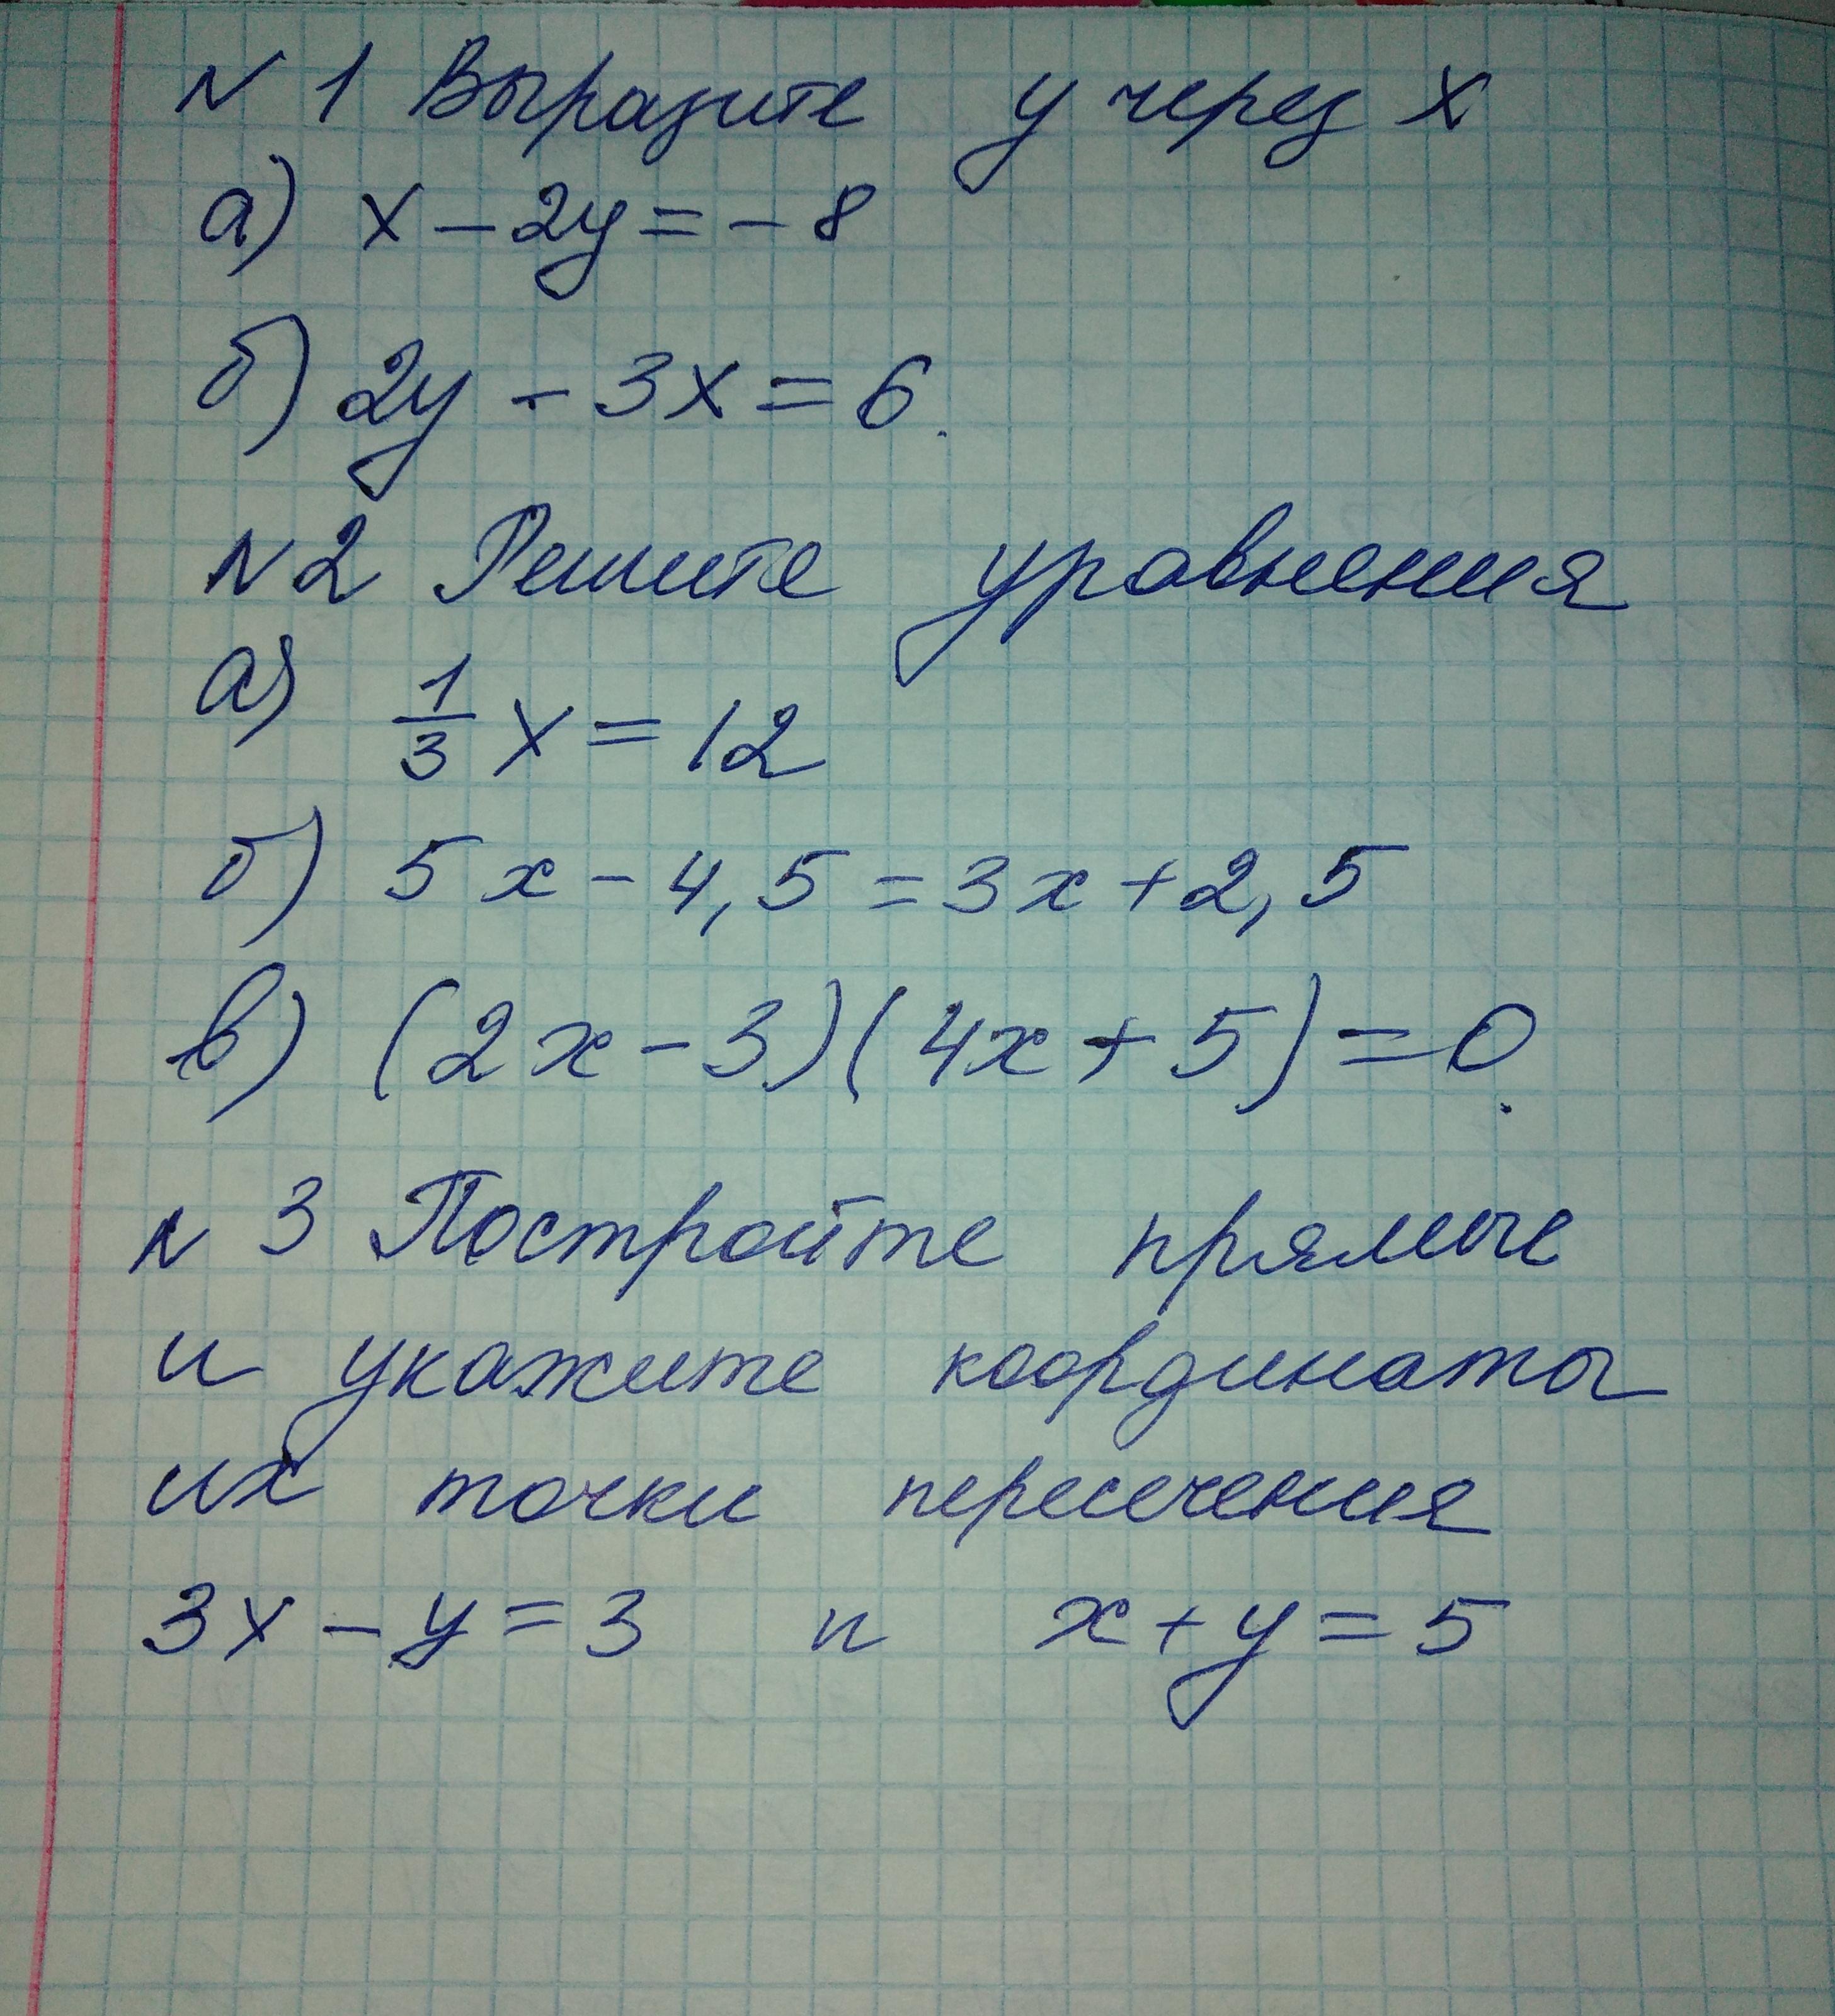 N 1 Выразите y через x
а) x - 2y = - 8
б) 2y - 3x = 6.
N 2 Решите уравнения
а) 1/3 x = 12
б) 5x - 4,5 = 3x + 2,5
в) (2x - 3)(4x + 5) = 0.
N 3 Постройте прямые
и укажите координаты
их точки пересечения
3x - y = 3 и x + y = 5